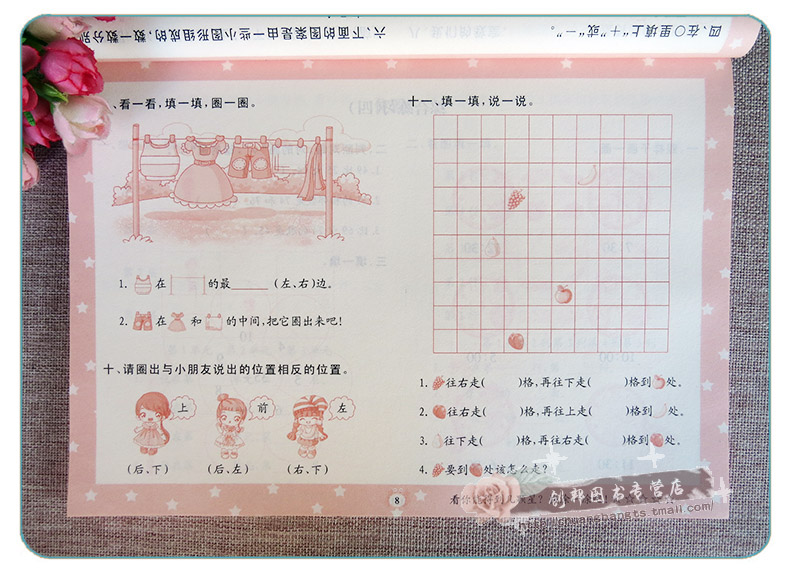 四、在○里填上“＋”或“－”。
六、下面的图案是由一些小图形组成的,数一数分别
、看一看,填一填,圈一圈。
1. 在 的最______(左、右)边。
2. 在 和 的中间,把它圈出来吧!
十、请圈出与小朋友说出的位置相反的位置。
上 前 左
(后、下) (后、左) (右、下)
十一、填一填,说一说。
1. 往右走( )格,再往下走( )格到 处。
2. 往右走( )格,再往上走( )格到 处。
3. 往下走( )格,再往右走( )格到 处。
4. 要到 处该怎么走?
8
看你能得到几颗星?
创邦图书专营店
http://chuangbangts.tmall.com/